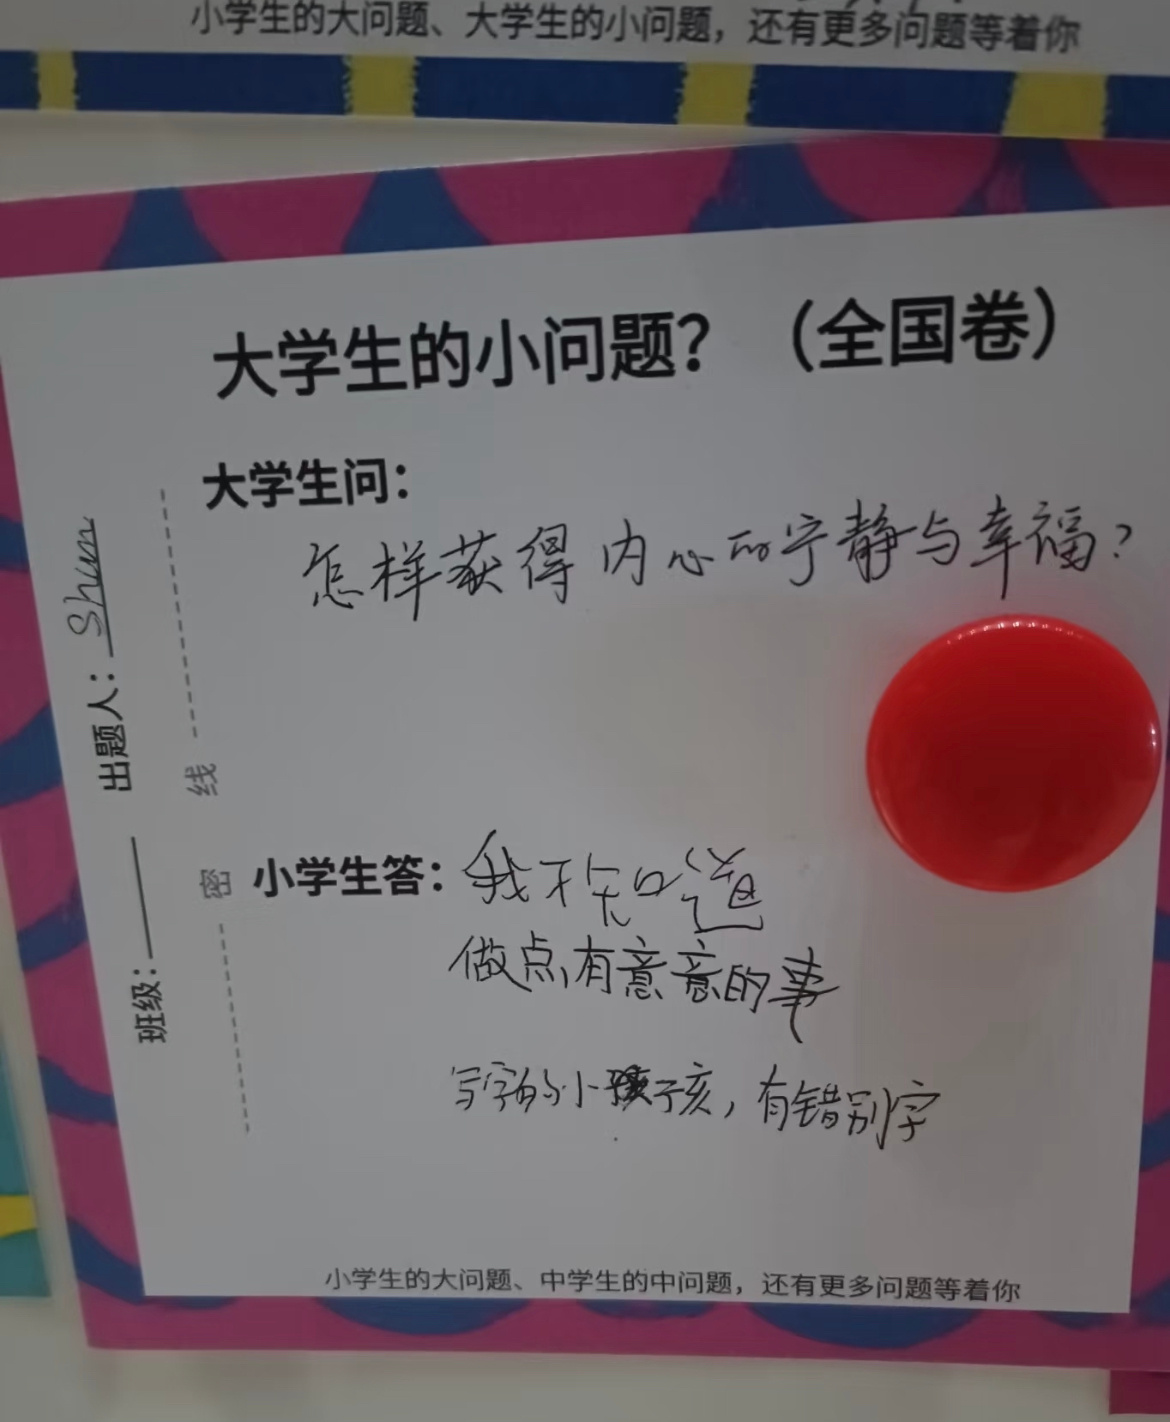 小学生的大问题、大学生的小问题，还有更多问题等着你
大学生的小问题？（全国卷）
大学生问：
怎样获得内心的宁静与幸福？
出题人：Shum
班级：
线
密
小学生答：我不知道
做点有意意的事
写字的小孩子亥，有错别字
小学生的大问题、中学生的中问题，还有更多问题等着你